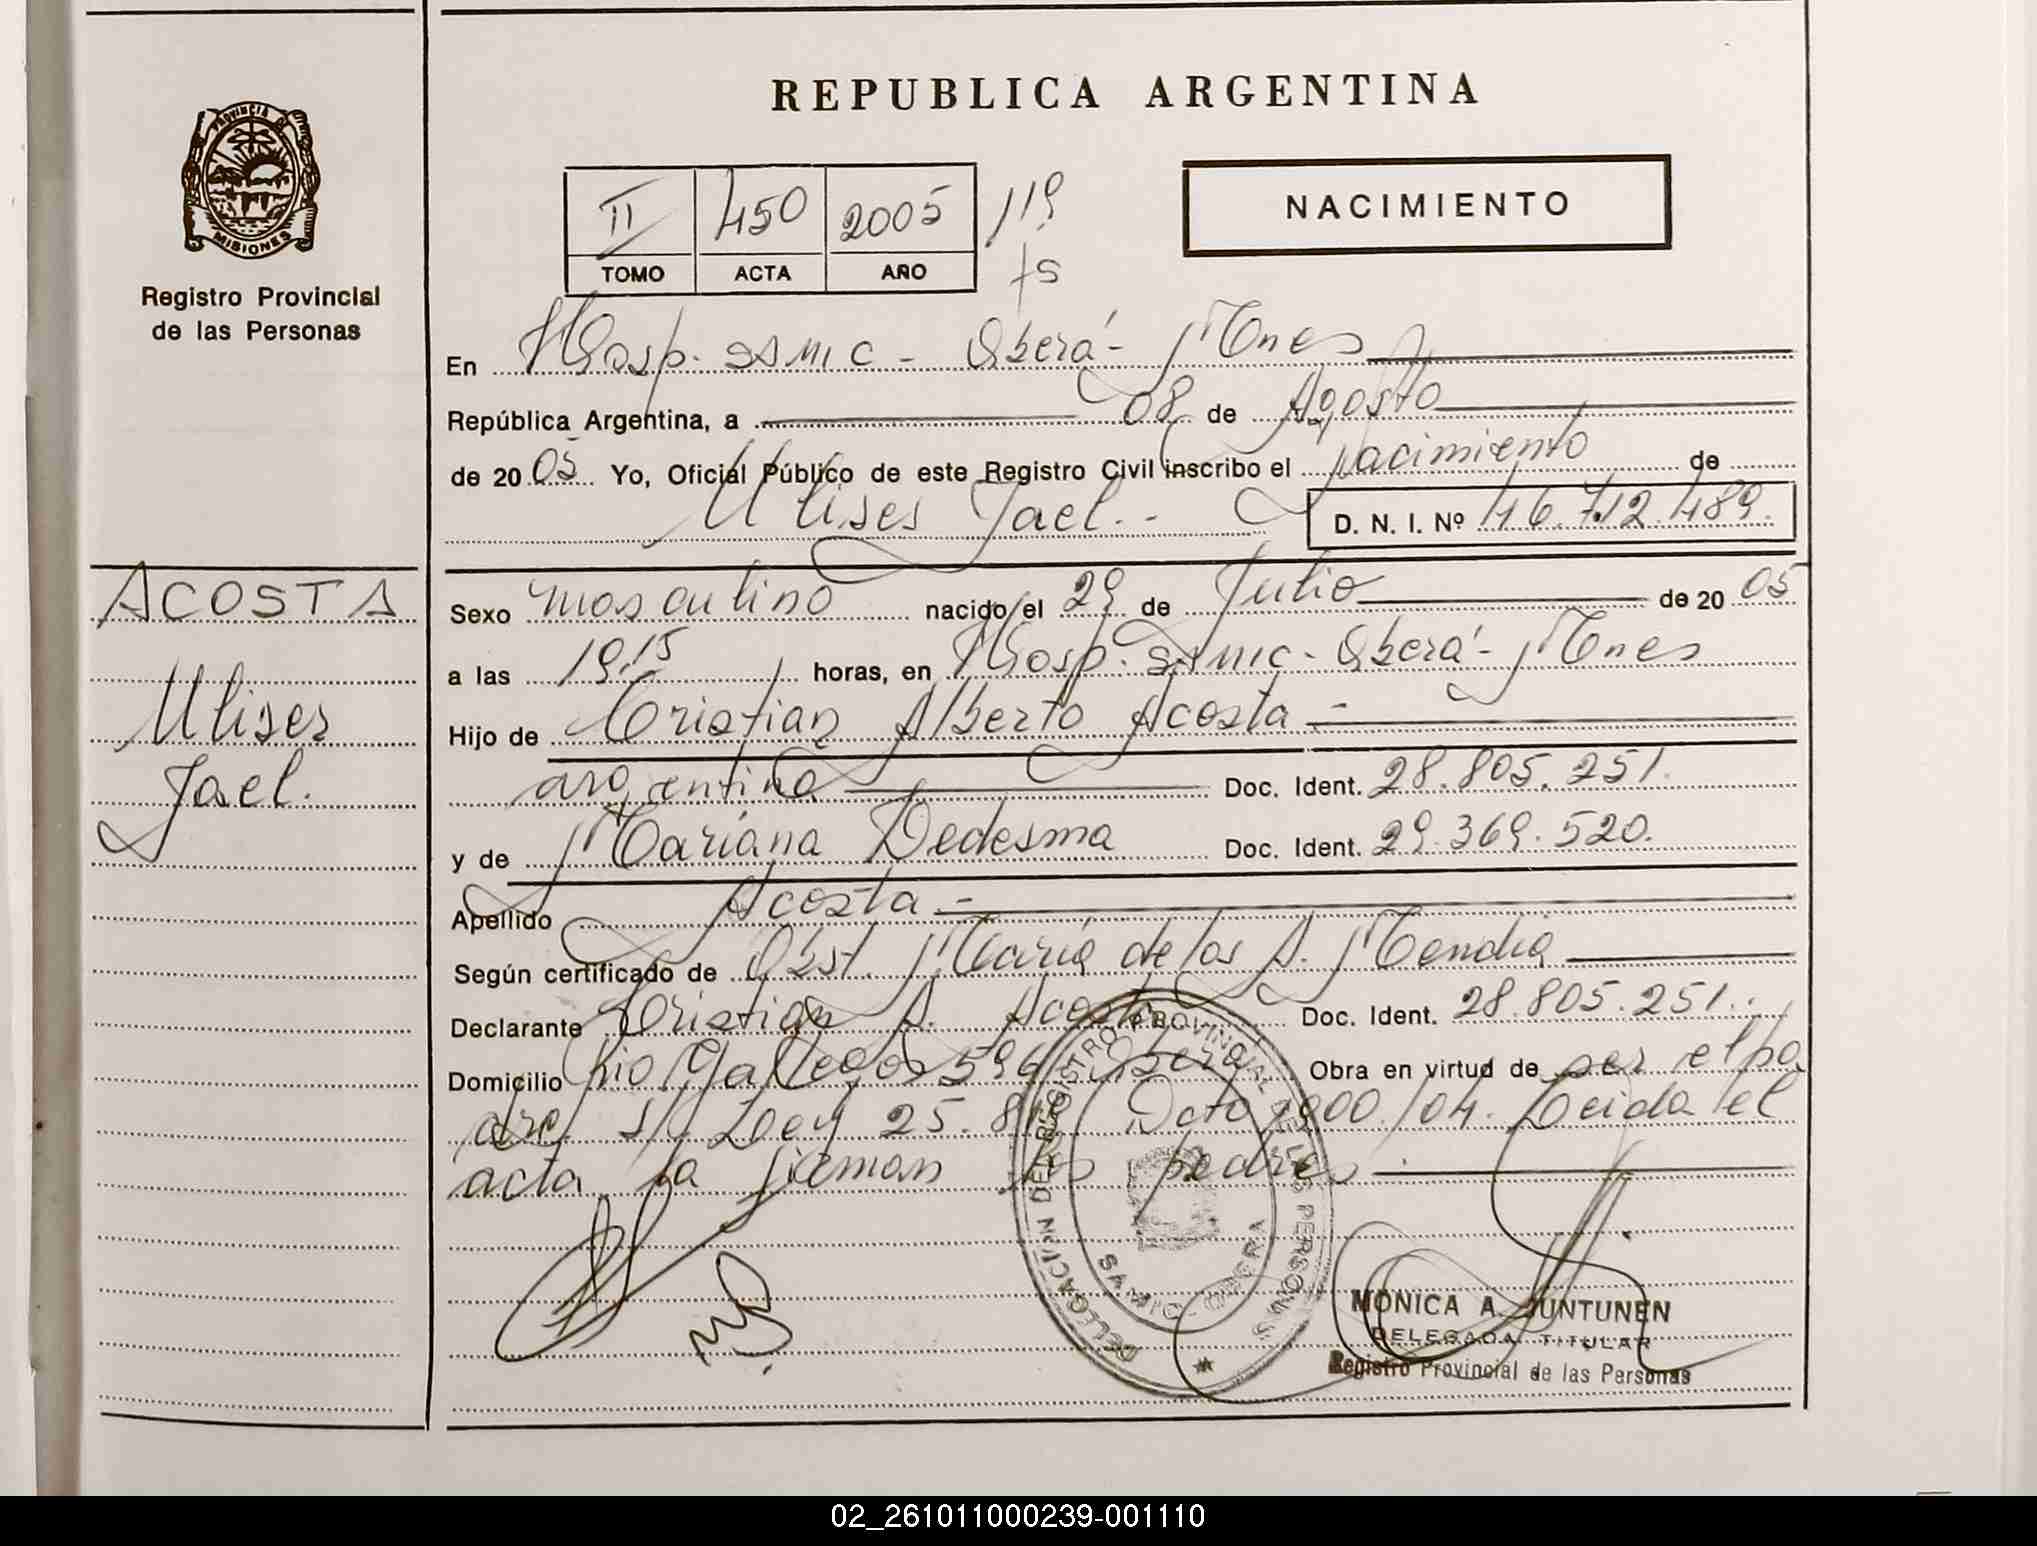 REPUBLICA ARGENTINA
PROVINCIA DE
MISIONES
Registro Provincial
de las Personas
II 450 2005 119
TOMO ACTA AÑO
fs
NACIMIENTO
En Hosp. SAMIC - Oberá - Mnes
República Argentina, a 08 de Agosto
de 2005 Yo, Oficial Público de este Registro Civil inscribo el nacimiento de
Ulises Jael.-
D. N. I. Nº 46.712.489.
ACOSTA
Ulises
Jael.
Sexo masculino nacido el 29 de Julio de 2005
a las 19,15 horas, en Hosp. SAMIC - Oberá - Mnes
Hijo de Cristian Alberto Acosta -
argentino Doc. Ident. 28.805.251.
y de Mariana Ledesma Doc. Ident. 29.369.520.
Apellido Acosta -
Según certificado de Obst. María de los A.
Declarante Cristian A. Acosta Doc. Ident. 28.805.251.
Domicilio Rio Gallegos 596 Oberá Obra en virtud de ser el pa
dre s/ Ley 25.819 Dcto 1900/04. Leida el
acta la firman los padres
DELEGACIÓN DEL REGISTRO PROVINCIAL DE LAS PERSONAS
SAMIC - OBERA
MONICA A. JUNTUNEN
DELEGADA TITULAR
Registro Provincial de las Personas
02_261011000239-001110